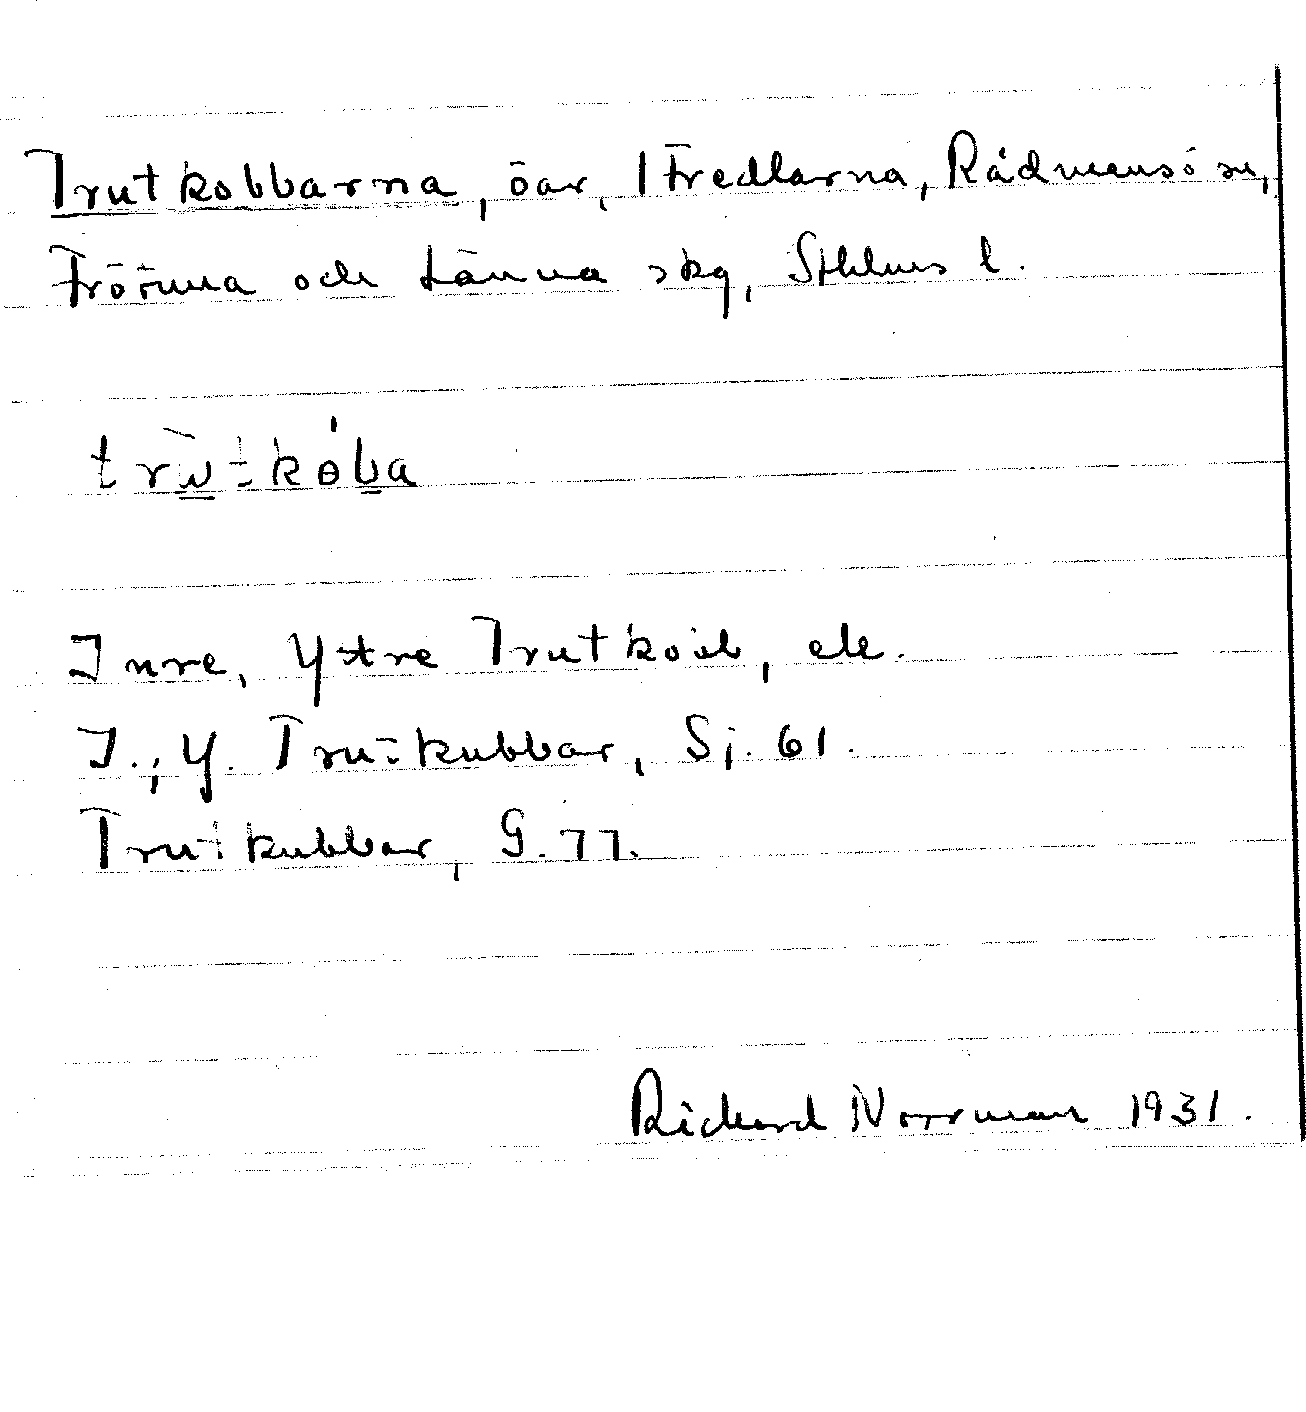 Trutkobbarna, öar, Fredlarna, Rådmansö sn,
Frötuna och Länna skg, Sthlms l.
trùtkòba
Inre, Yttre Trutkobb, ek.
I., Y. Trutkubbar, Sj. 61.
Trutkubbar, G. 77.
Rickard Norrman 1931.